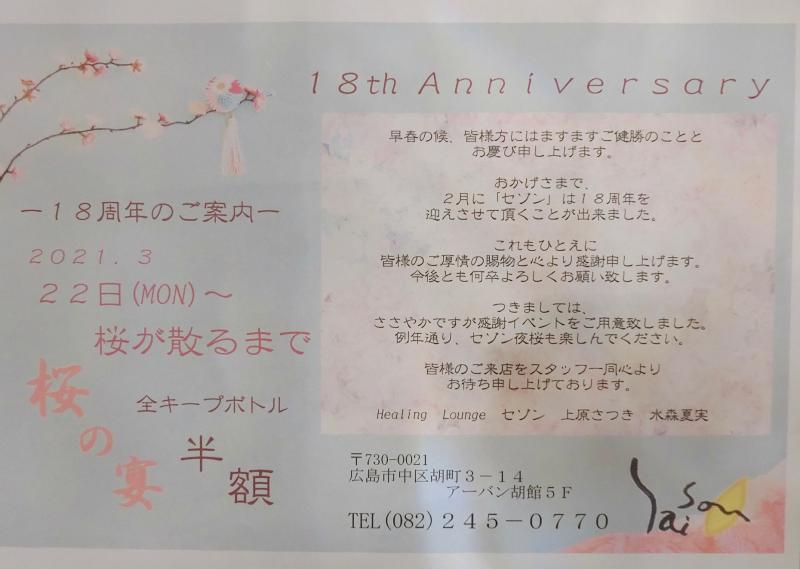 18th Anniversary
早春の候、皆様方にはますますご健勝のことと
お慶び申し上げます。
おかげさまで、
2月に「セゾン」は18周年を
迎えさせて頂くことが出来ました。
これもひとえに
皆様のご厚情の賜物と心より感謝申し上げます。
今後とも何卒よろしくお願い致します。
つきましては、
ささやかですが感謝イベントをご用意致しました。
例年通り、セゾン夜桜も楽しんでください。
皆様のご来店をスタッフ一同心より
お待ち申し上げております。
Healing Lounge セゾン 上原さつき 水森夏実
ー18周年のご案内ー
2021.3
22日(MON)〜
桜が散るまで
桜の宴
全キープボトル
半額
〒730-0021
広島市中区胡町3－14
アーバン胡館5F
TEL(082)245－0770
Saison